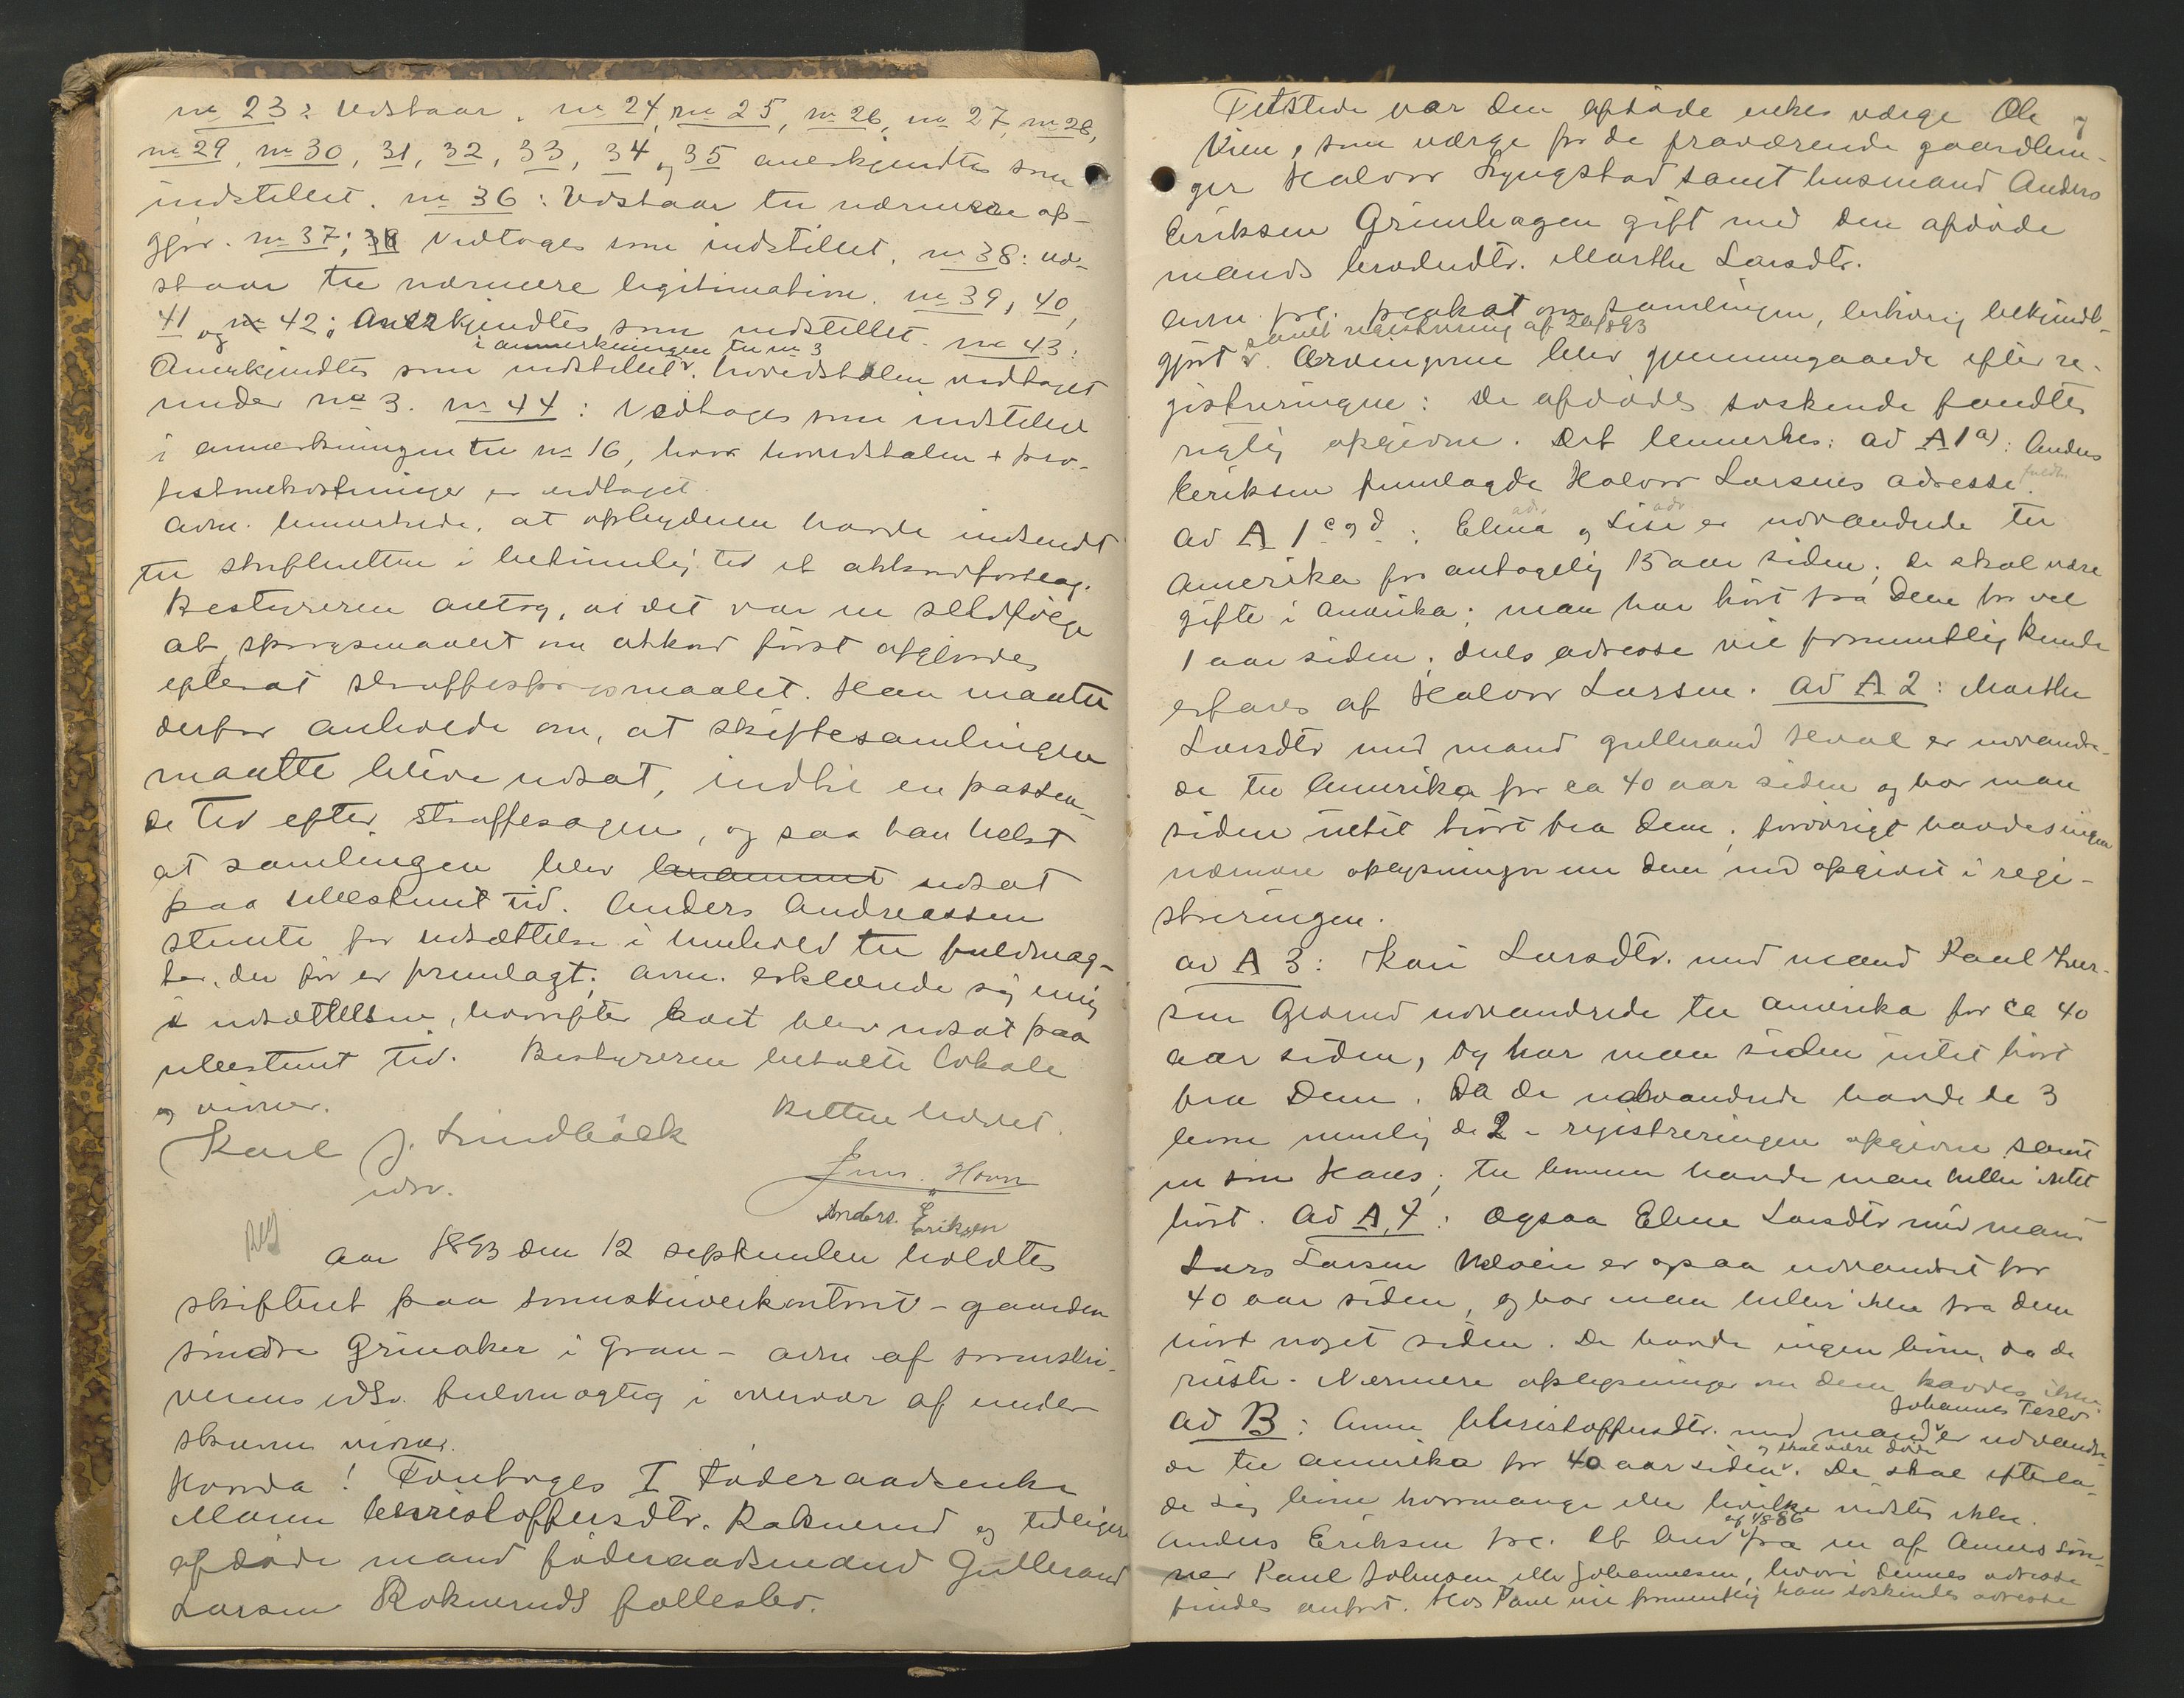 no 23: Udstaar. no 24, no 25, no 26, no 27, no 28,
no 29, no 30, 31, 32, 33, 34 og 35 anerkjendtes som
indstillet. no 36: Udstaar til nærmere op-
gjør. no 37: Vedtoges som indstillet, no 38: ud-
staar til nærmere legitimation. no 39, 40,
41 og no 42: Anerkjendtes som indstillet. no 43:
i anmerkningen til no 3
Anerkjendtes som indstillet, hovedstolen vedtaget
under no 3. no 44: Vedtoges som indstillet
i anmerkningen til no 16, hvor hovedstolen + pro-
testomkostninger er vedtaget.
Advn. bemerkede, at opbyderen havde indsendt
til skifteretten i betimelig tid et akkordforslag.
Bestyreren antog, at det var en selvfølge
at spørgsmaalet om akkord først afgjordes
efterat straffespørgsmaalet. Han maatte
derfor anholde om, at skiftesamlingen
maatte blive udsat, indtil en passen-
de tid efter straffesagen, og saa han helst
at samlingen blev berammet udsat
paa ubestemt tid. Anders Andreassen
stemte for udsættelse i henhold til fuldmag-
ter, der før er fremlagt; advn. erklærede sig enig
i udsættelsen, hvorefter boet blev udsat paa
ubestemt tid. Bestyreren betalte lokale
og vidner.
Retten hævet.
Karl J. Lindbæck
edsv.
Jens Hovn
Anders Eriksen
Aar 1893 den 12 september holdtes
skifteret paa sorenskriverkontoret - gaarden
søndre Grinaker i Gran - advn af sorenskri-
verens edsv. fuldmægtig i overvær af under-
skrevne vidner.
Hvorda! Foretoges I Føderaadsenke
Maren Christoffersdtr. Raknerud og tidligere
afdøde mand føderaadsmand Gulbrand
Larsen Raknerud fællesbo.
Tilstede var den afdøde enkes værge Ole
Vien, som værge for de fraværende gaardbru-
ger Halvor Lyngstad samt husmand Anders
Eriksen Grinihagen gift med den afdøde
mands broderdtr. Marthe Larsdtr.
Advn. frl. plakat om samlingen, behørig bekjendt-
samt registrering af 26/8 93
gjort. Arvingerne blev gjennemgaaede efter re-
gistreringen: De afdødes søskende fandtes
rigtig opgivne. Det bemerkes: ad A 1 a): Anders
Eriksen fremlagde Halvor Larsens adresse.
ad A 1 c og d: Elina og Lise er udvandrede til
Amerika for antagelig 15 aar siden; de skal være
gifte i Amerika; man har hørt fra dem for vel
1 aar siden; deres adresse vil formentlig kunde
erfares af Halvor Larsen. Ad A 2: Marthe
Larsdtr med mand Gulbrand Hval er udvandre-
de til Amerika for ca 40 aar siden og har man
siden intet hørt fra dem; forøvrigt havdes ingen
nærmere oplysninger om dem end opgivet i regi-
streringen.
ad A 3: Kari Larsdtr. med mand Paul Iver-
sen Gjerud udvandrede til Amerika for ca 40
aar siden, og har man siden intet hørt
fra dem. Da de udvandrede havde de 3
børn nemlig de 2 i registreringen opgivne samt
en søn Hans; til børnene havde man heller intet
hørt. Ad A 4: Ogsaa Eline Larsdtr med mand
Lars Larsen Hvalein er ogsaa udvandret for
40 aar siden, og har man heller ikke fra dem
hørt noget siden. De havde ingen børn, da de
reiste. Nærmere oplysninger om dem havdes ikke.
Johannes Teslo
Ad B: Anne Christoffersdtr. med mand er udvandre-
og skal være døde
de til Amerika for 40 aar siden. De skal efterla-
de sig børn hvormange eller hvilke vidstes ikke.
af 1/8 86
Anders Eriksen frl. et brev fra en af Annes søn-
ner Paul Johnsen eller Johannesen, hvori dennes adresse
findes anført. Hos Paul vil formentlig hans søskendes adresse